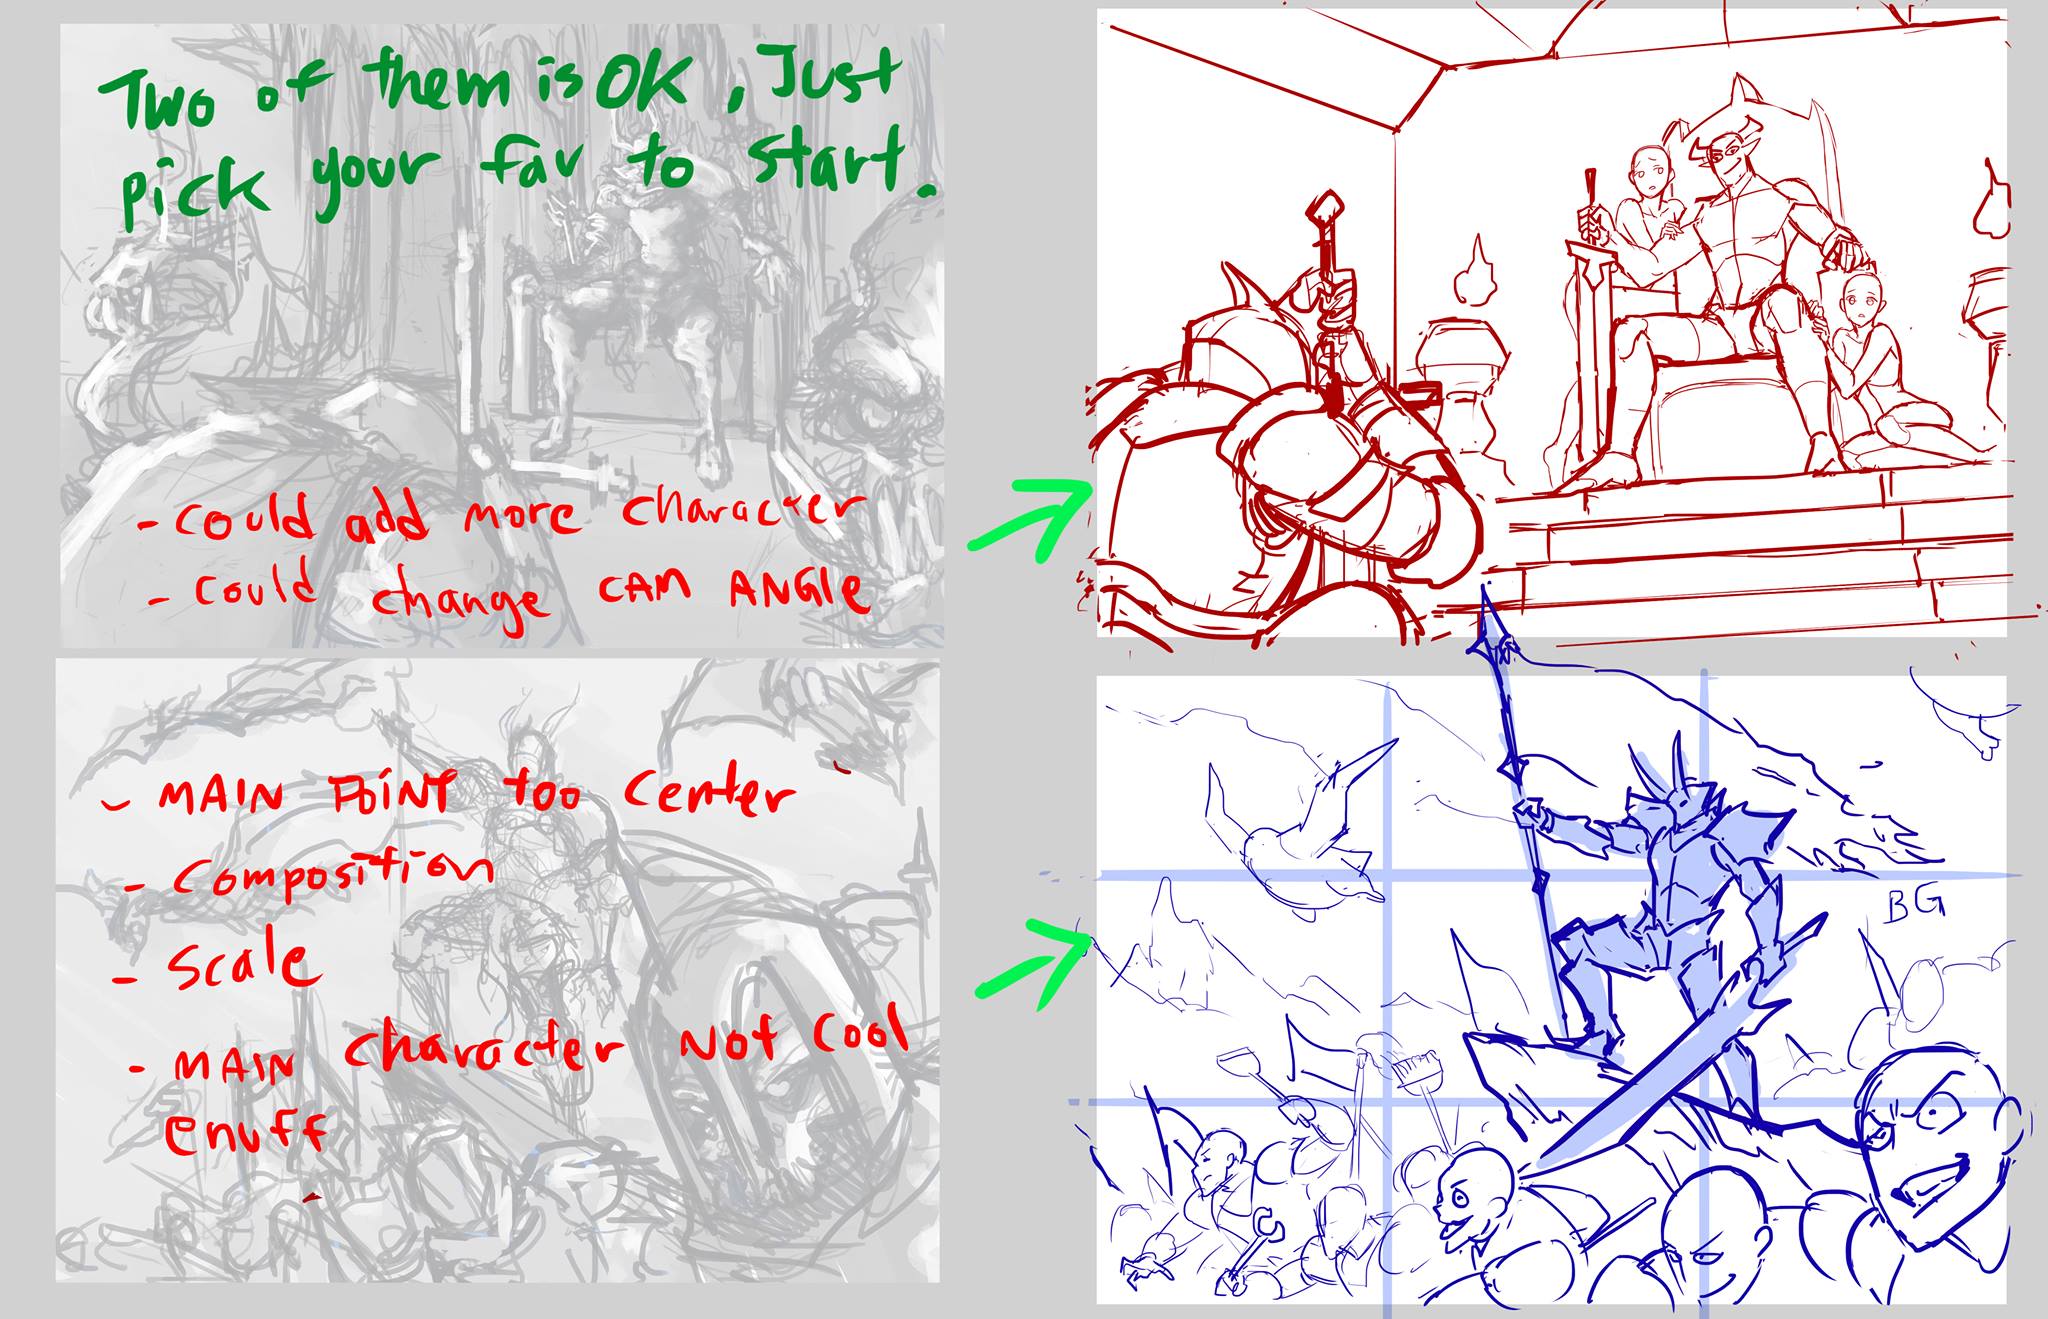 Two of them is OK, Just
pick your fav to start.
- could add more character
- could change CAM ANGLE
- MAIN POINT too center
- composition
- scale
- MAIN character NOT cool
enuff
BG